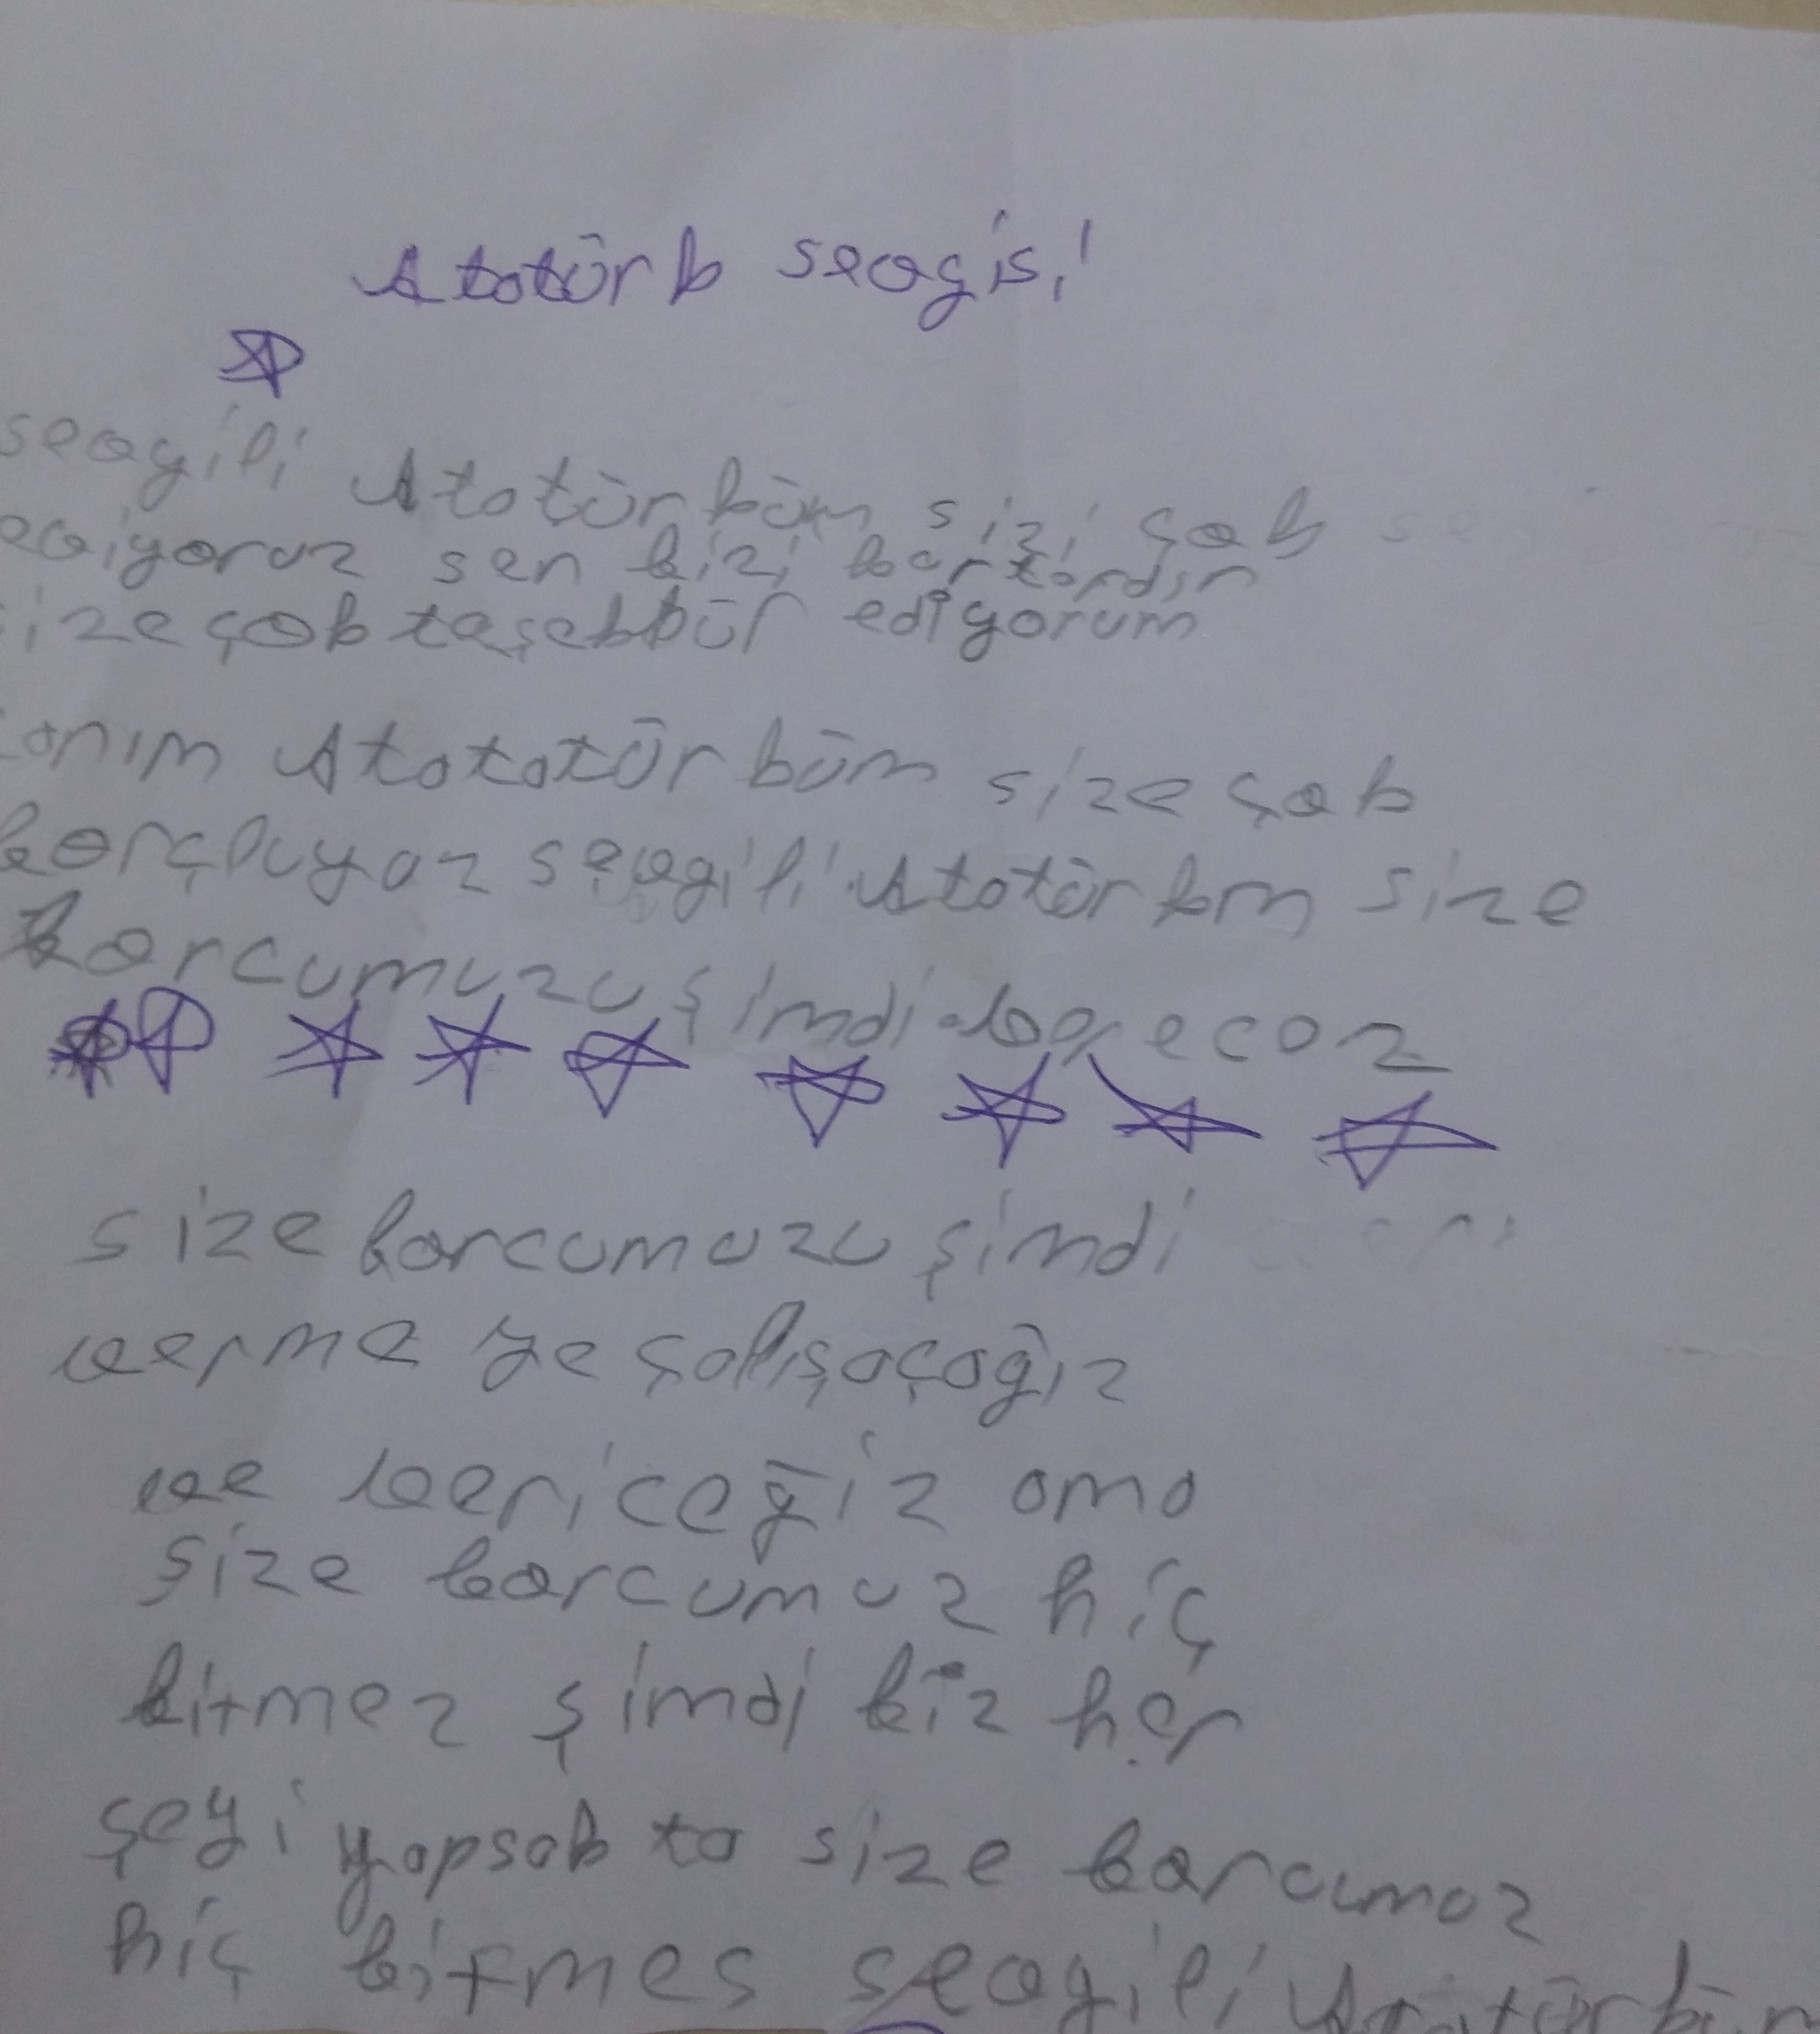 Atatürk sevgisi!
sevgili Atatürküm sizi çok
eviyoruz sen bizi kurtardın
ize çok teşekkür ediyorum
canım Atatatürküm size çok
borçluyuz sevgili Atatürkm size
borcumuzu şimdi
size borcumuzu şimdi
verme ye çalışaçağız
ve vericeğiz ama
size borcumuz hiç
bitmez şimdi biz her
şeyi yapsak ta size borcumuz
hiç bitmes sevgili Atatürküm